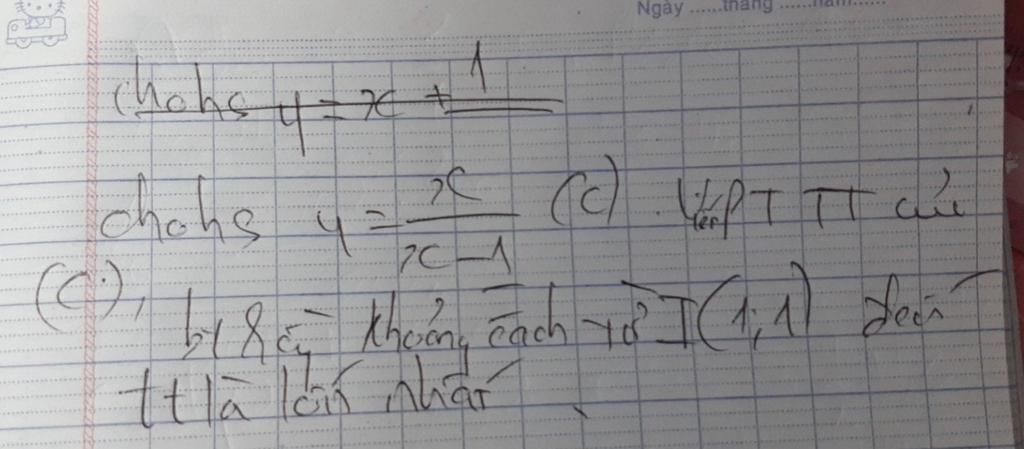 Ngày ......tháng ......năm......
cho hs y = x + 1
cho hs y = x/(x-1) (C). Viết PT TT củ
(C),
biết khoảng cách từ I(1;1) đến
tt là lớn nhất